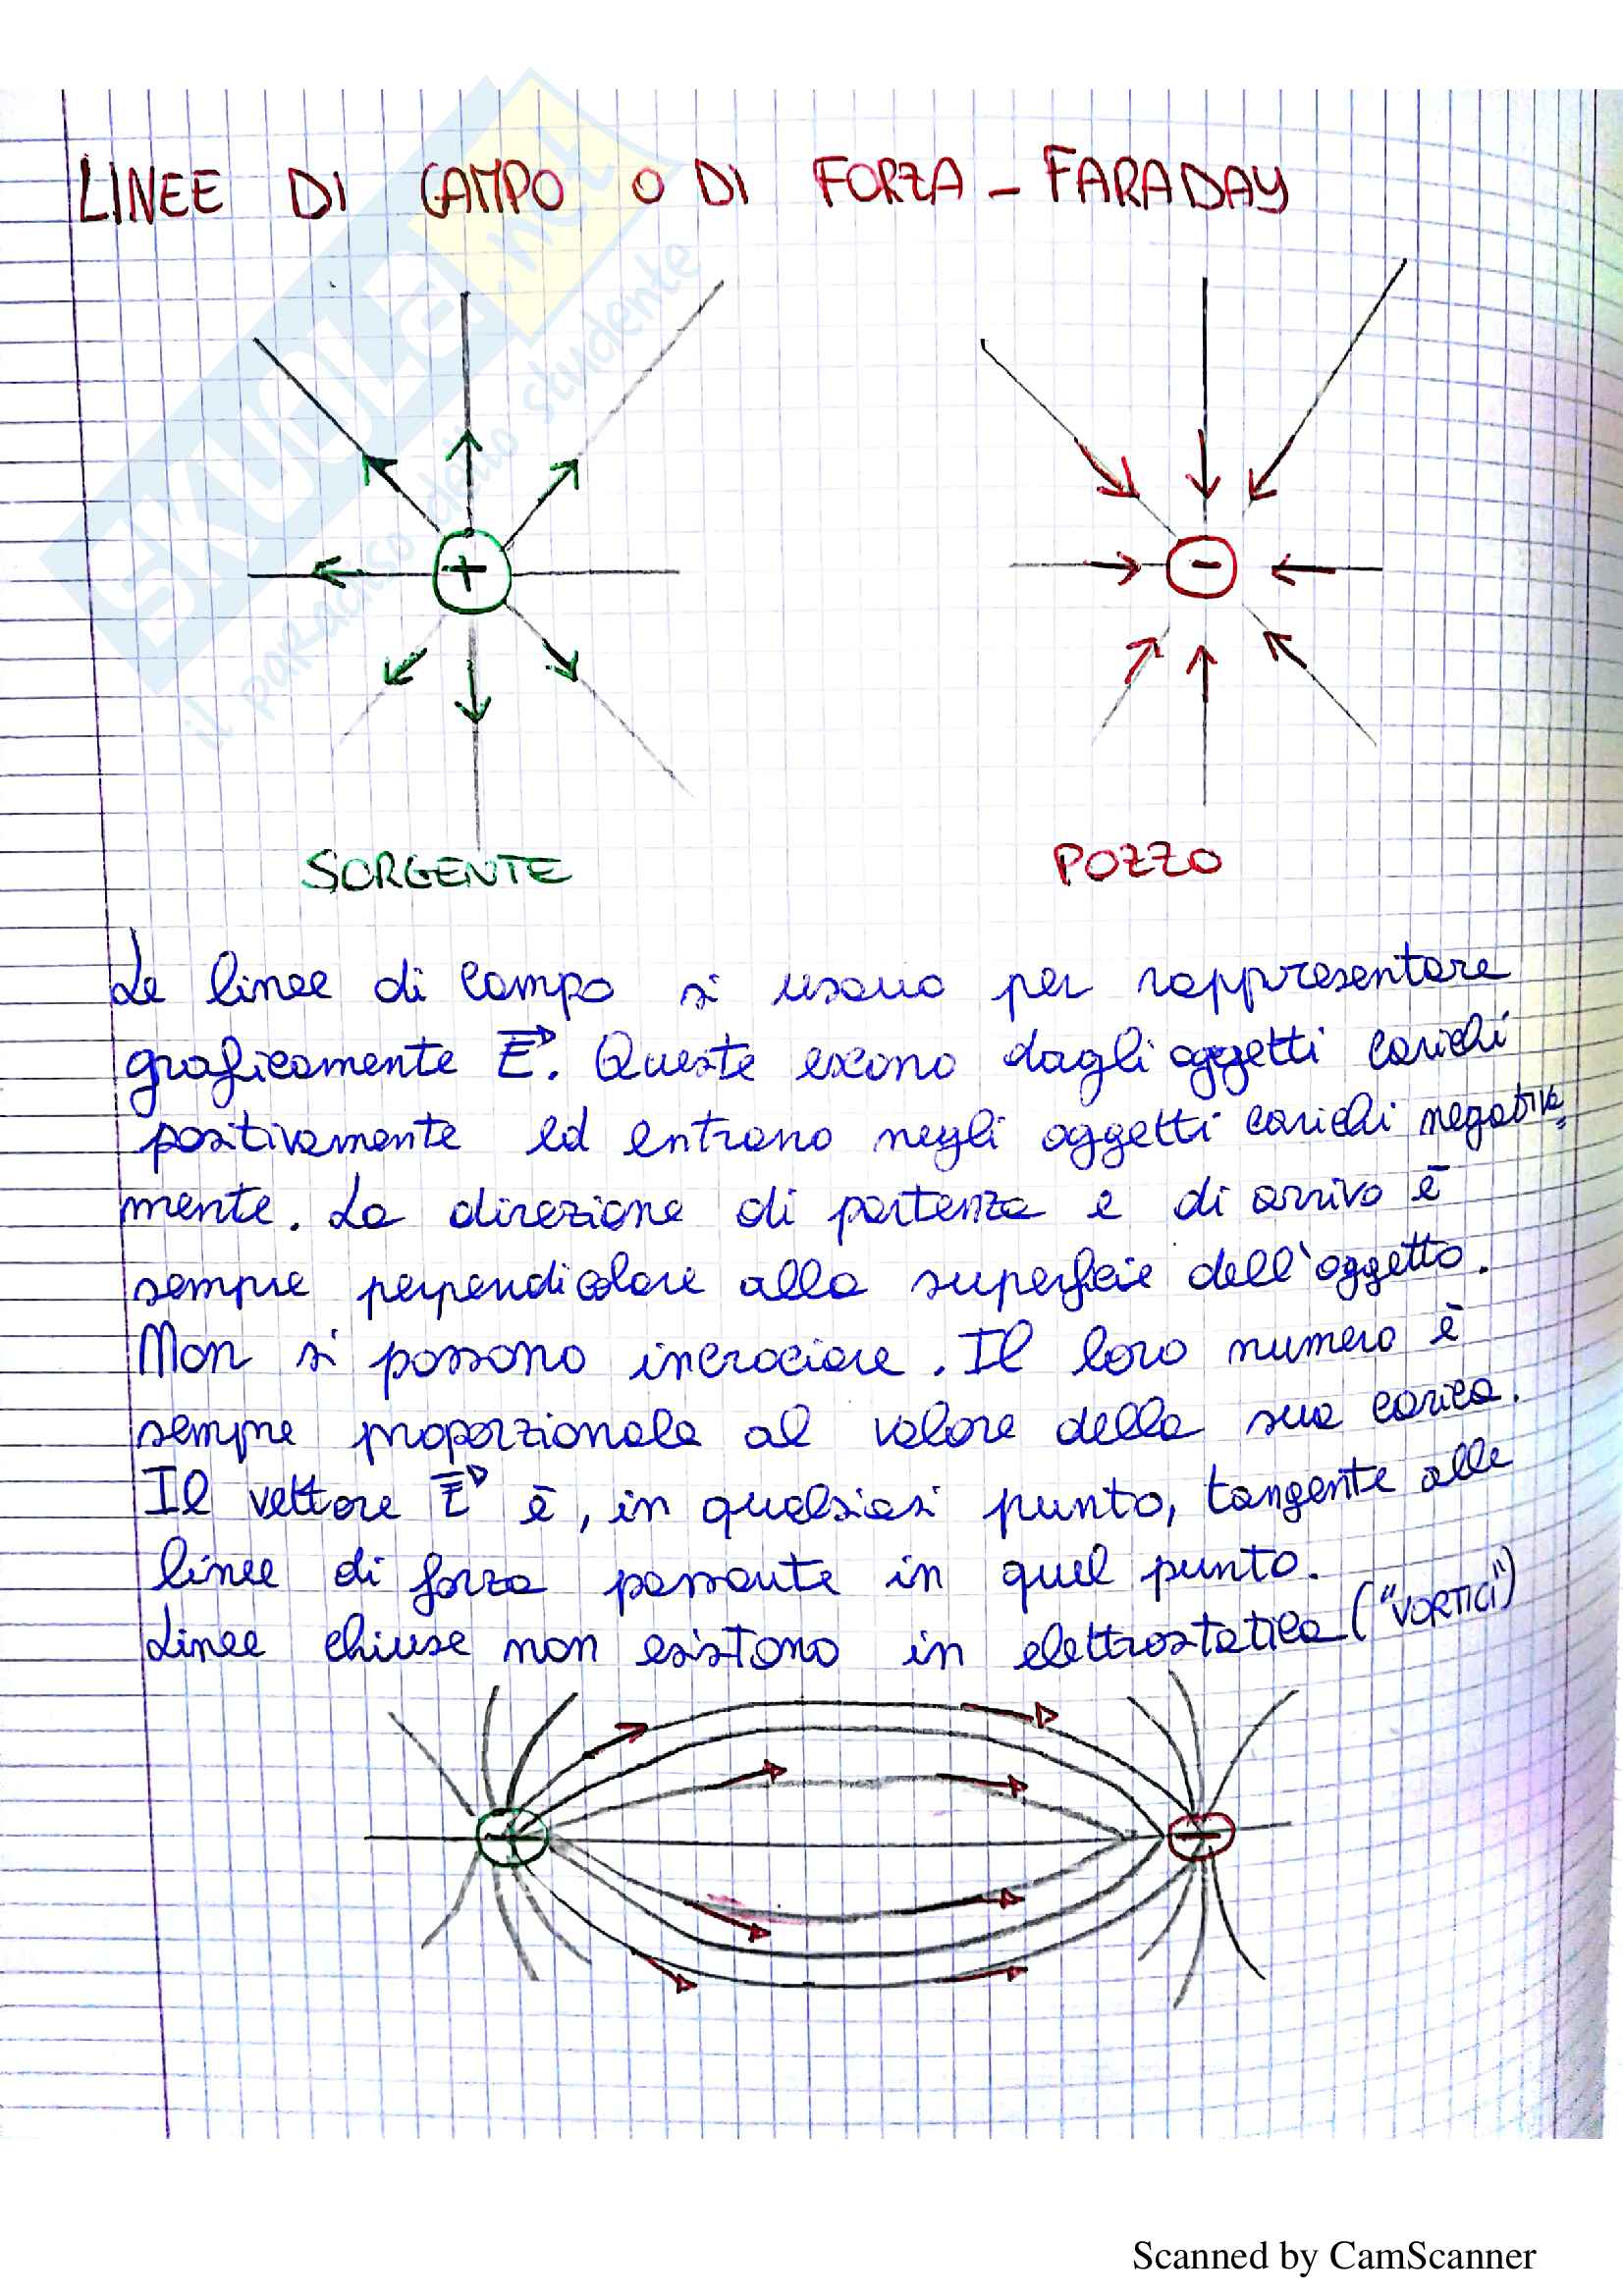 LINEE DI CAMPO O DI FORZA - FARADAY
SKUOLA.net
il paradiso dello studente
+
-
SORGENTE
POZZO
Le linee di campo si usano per rappresentare
graficamente E. Queste escono dagli oggetti carichi
positivamente ed entrano negli oggetti carichi negativa=
mente. La direzione di partenza e di arrivo è
sempre perpendicolare alla superficie dell'oggetto.
Non si possono incrociare. Il loro numero è
sempre proporzionale al valore della sua carica.
Il vettore E è, in qualsiasi punto, tangente alle
linee di forza passante in quel punto.
Linee chiuse non esistono in elettrostatica ("VORTICI")
+
-
Scanned by CamScanner